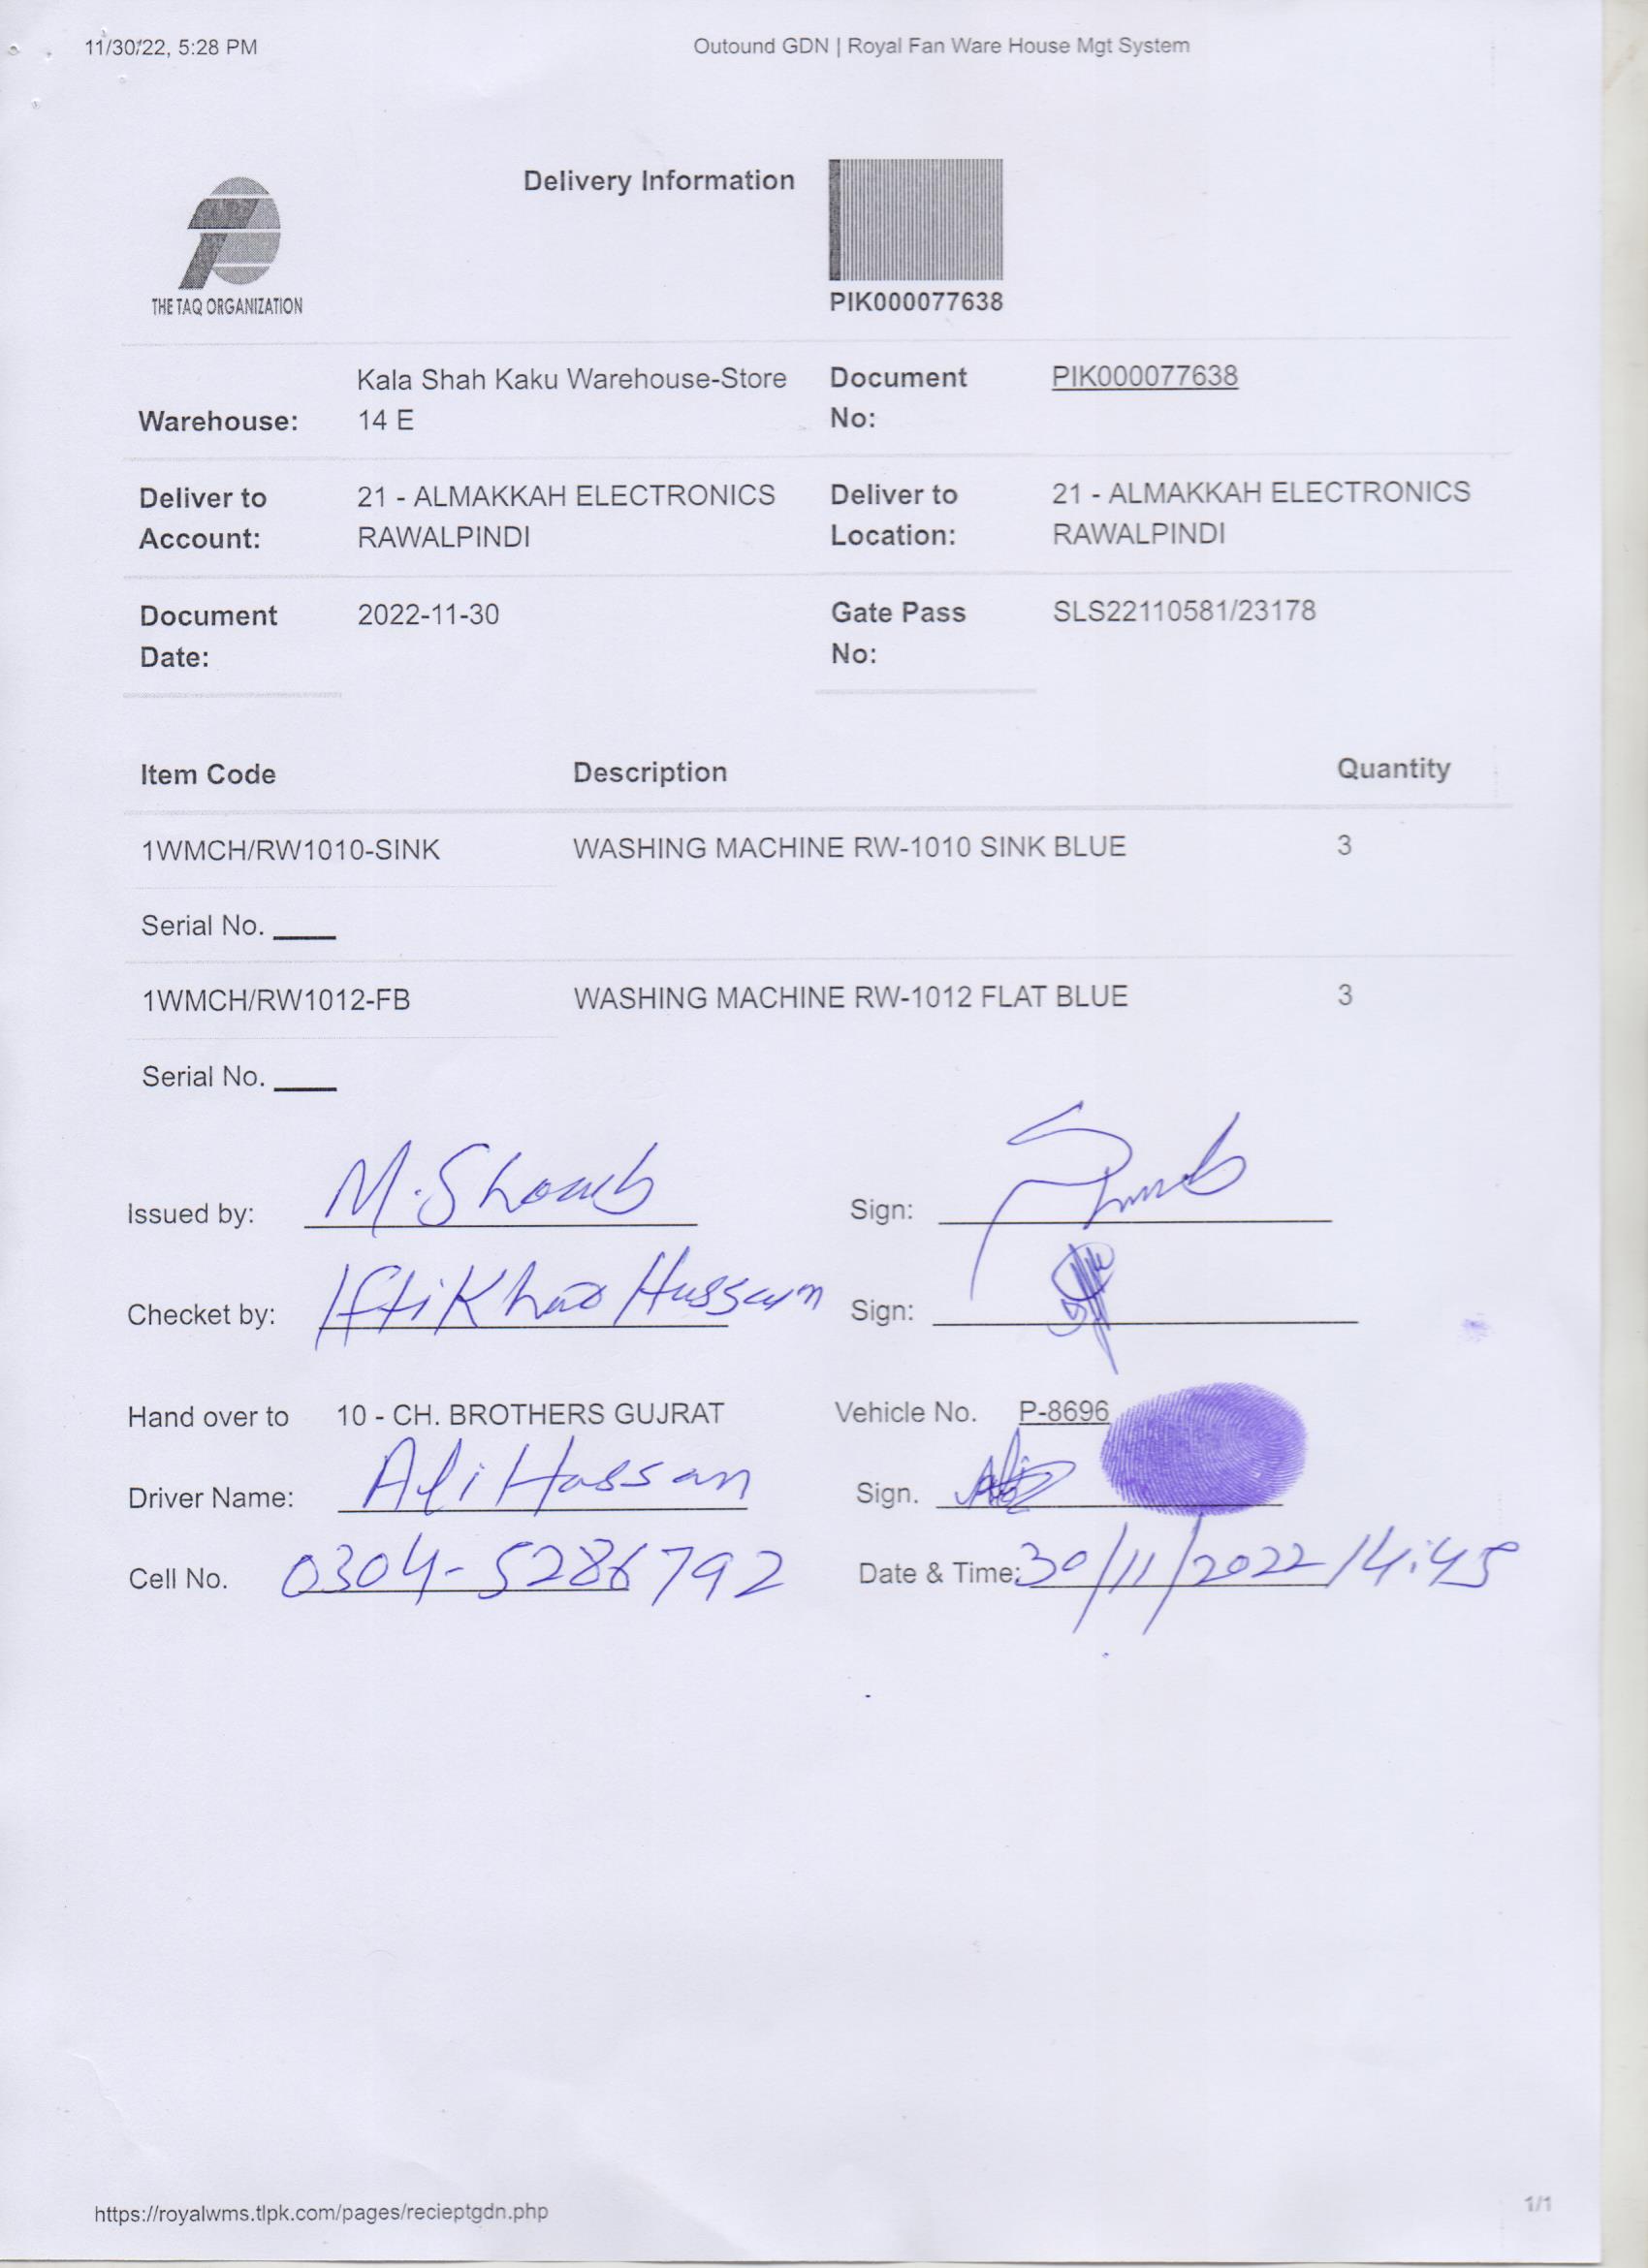 11/30/22, 5:28 PM Outound GDN | Royal Fan Ware House Mgt System
Delivery Information
THE TAQ ORGANIZATION
PIK000077638
Warehouse: Kala Shah Kaku Warehouse-Store 14 E
Document No: PIK000077638
Deliver to Account: 21 - ALMAKKAH ELECTRONICS RAWALPINDI
Deliver to Location: 21 - ALMAKKAH ELECTRONICS RAWALPINDI
Document Date: 2022-11-30
Gate Pass No: SLS22110581/23178
Item Code Description Quantity
1WMCH/RW1010-SINK WASHING MACHINE RW-1010 SINK BLUE 3
Serial No. ____
1WMCH/RW1012-FB WASHING MACHINE RW-1012 FLAT BLUE 3
Serial No. ____
Issued by: M. Shoaib Sign:
Checket by: Iftikhar Hussain Sign:
Hand over to 10 - CH. BROTHERS GUJRAT Vehicle No. P-8696
Driver Name: Ali Hassan Sign.
Cell No. 0304-5286792 Date & Time: 30/11/2022 14:45
https://royalwms.tlpk.com/pages/recieptgdn.php 1/1